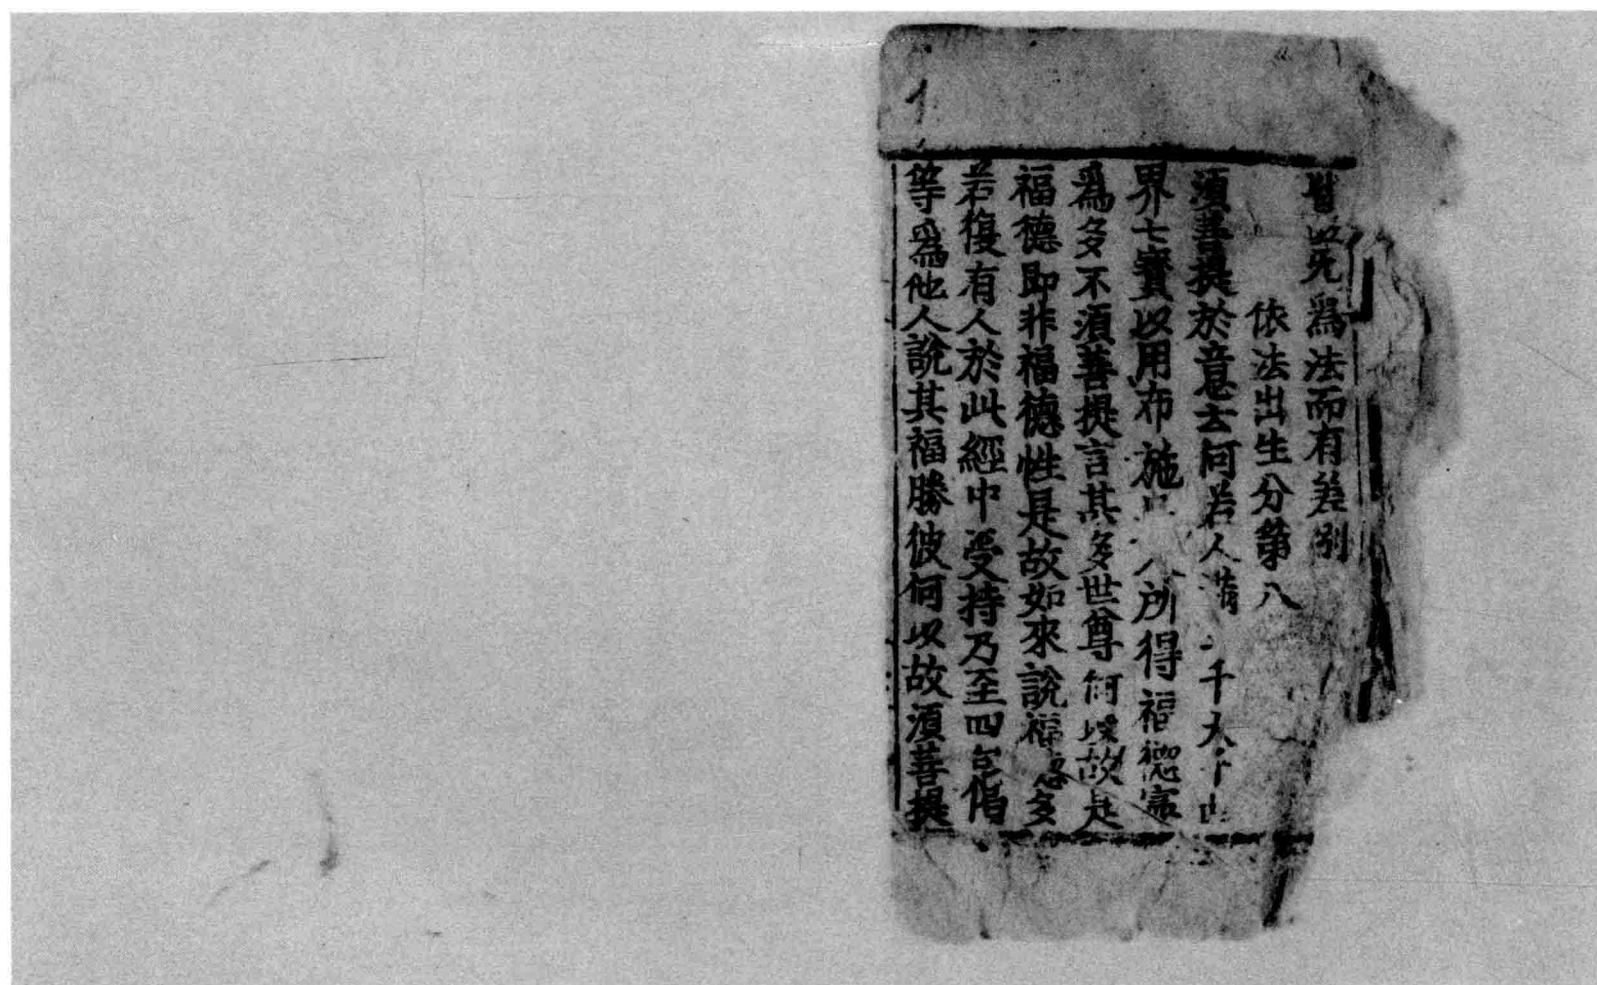 皆以无爲法而有差別
依法出生分第八
須菩提於意云何若人滿千大千
界七寳以用布施人所得福德寜
爲多不須菩提言甚多世尊何以故是
福德即非福德性是故如來說福德多
若復有人於此經中受持乃至四句偈
等爲他人說其福勝彼何以故須菩提